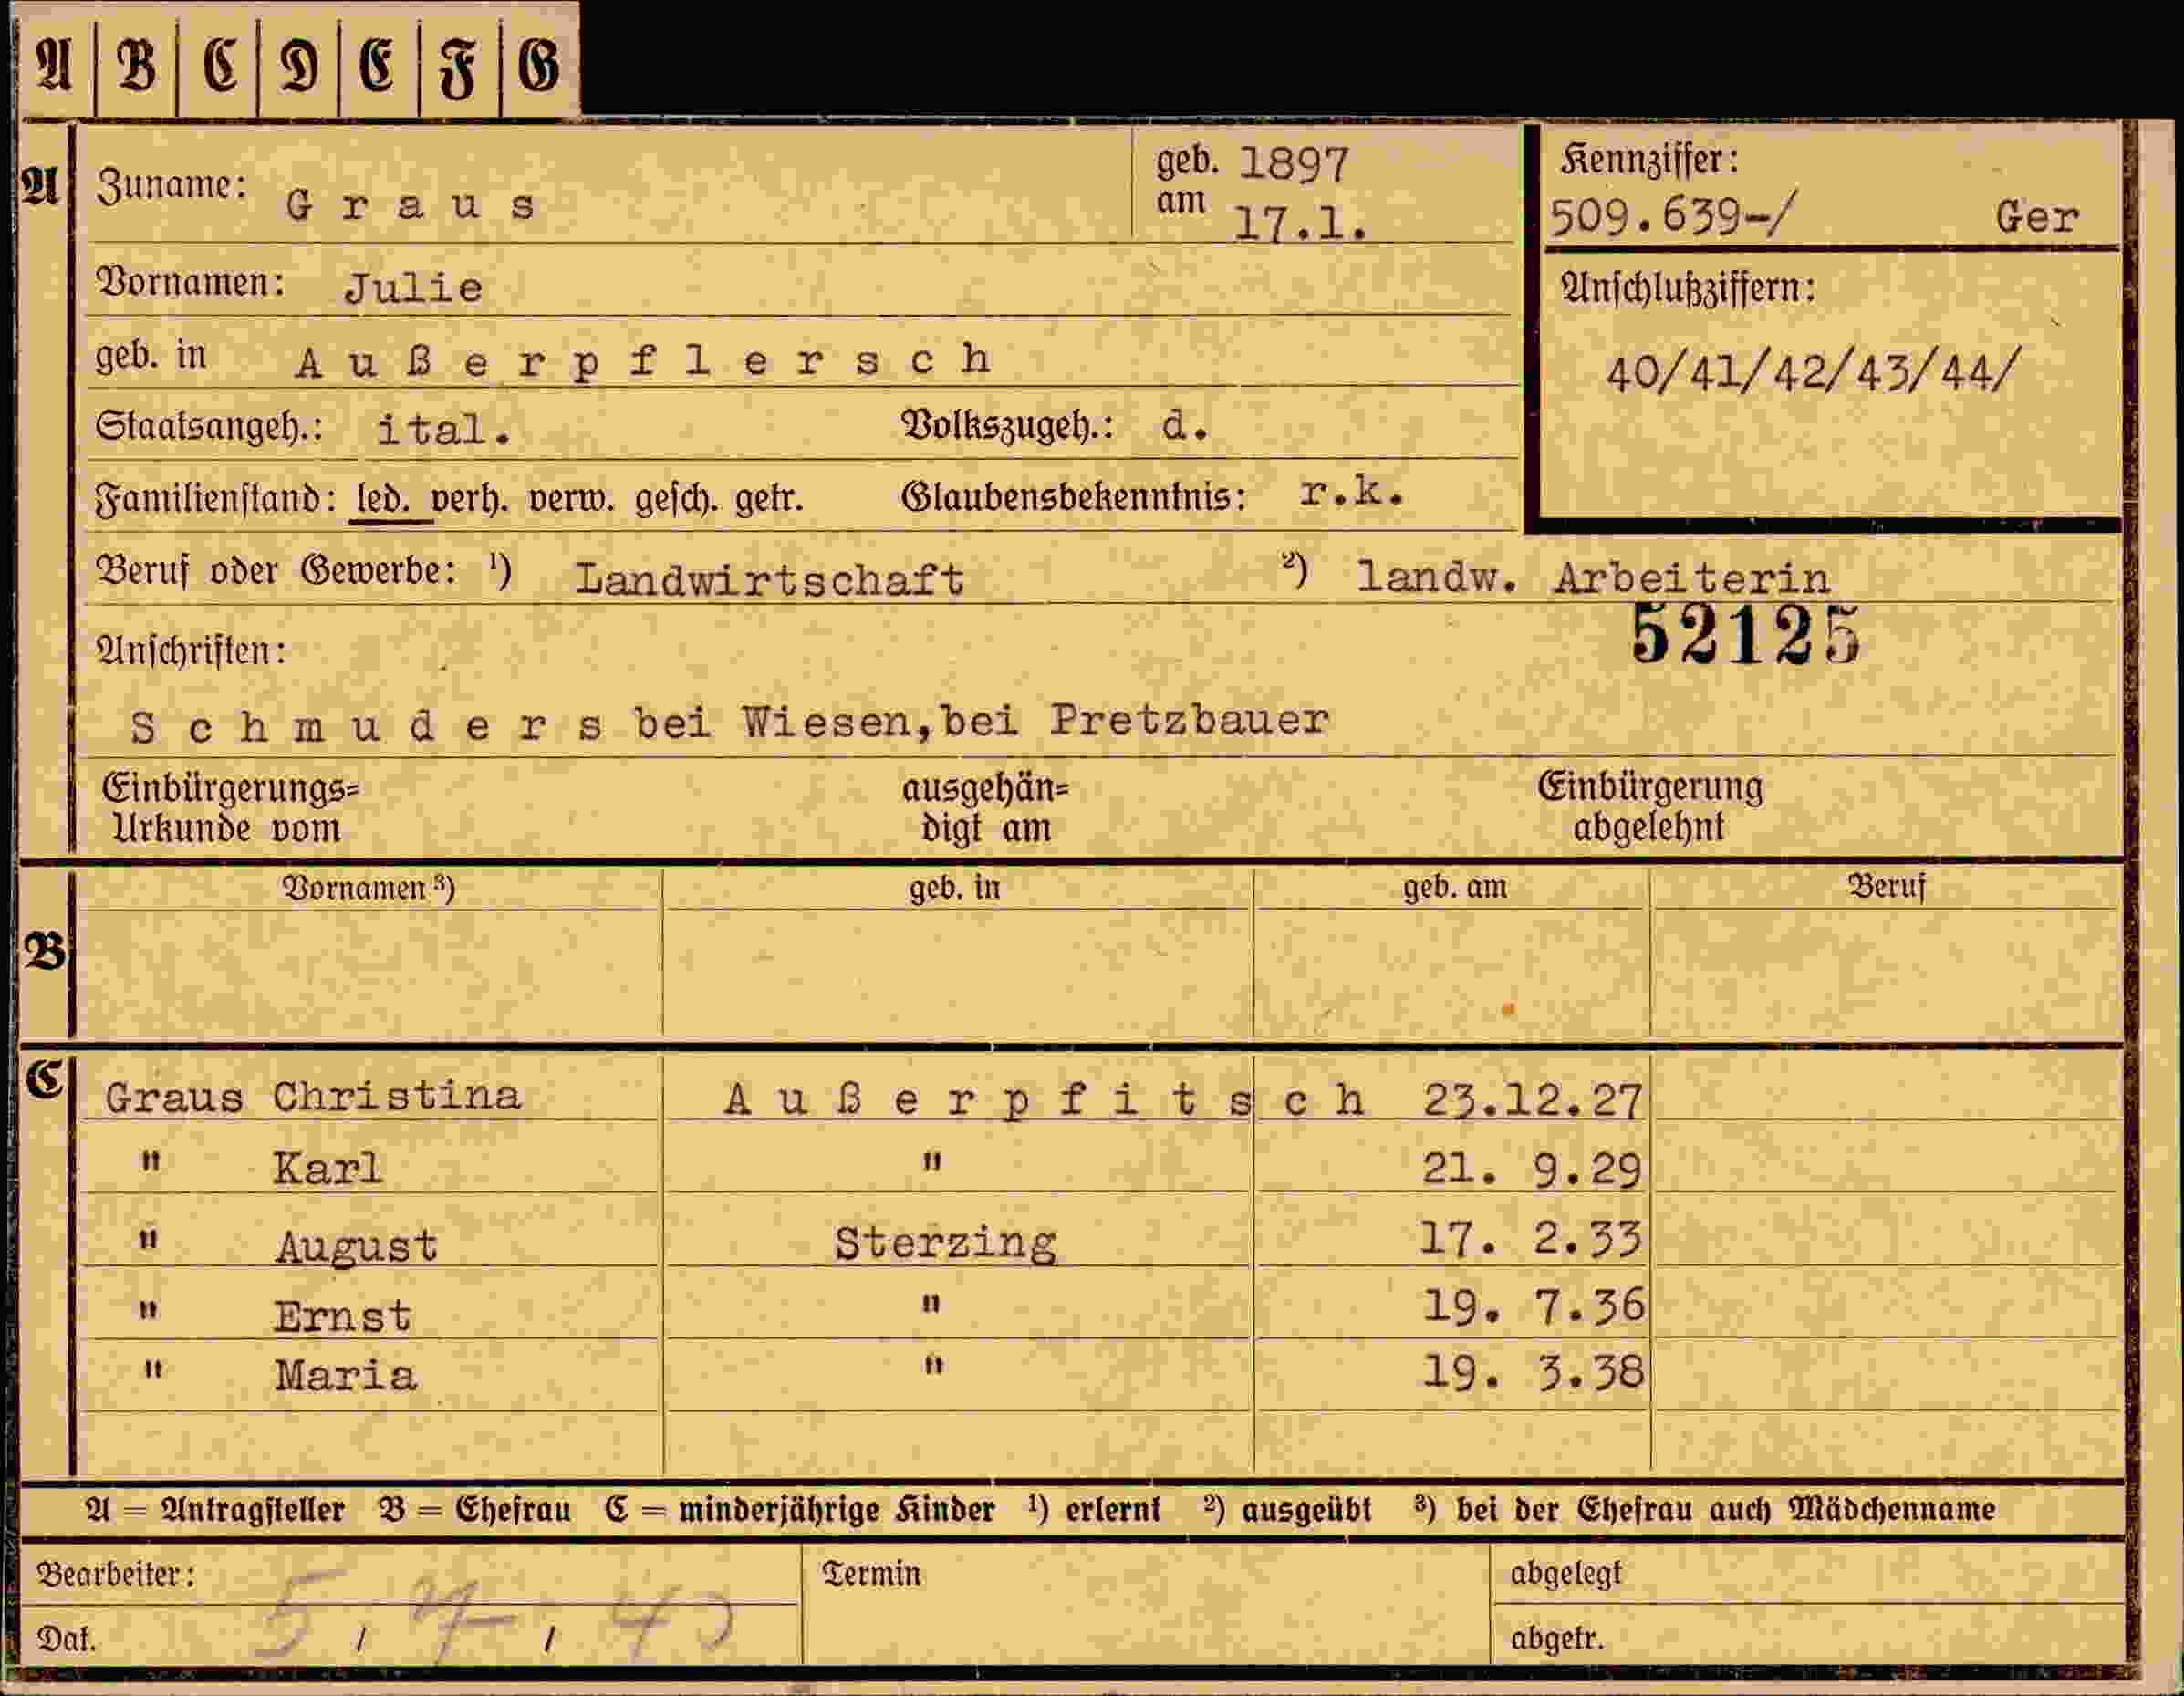 A B C D E F G
A Zuname: Graus geb. am 1897 17.1. Kennziffer:
509.639-/ Ger
Vornamen: Julie Anschlußziffern:
geb. in Außerpflersch 40/41/42/43/44/
Staatsangeh.: ital. Volkszugeh.: d.
Familienstand: led. verh. verw. gesch. getr. Glaubensbekenntnis: r.k.
Beruf oder Gewerbe: ¹) Landwirtschaft ²) landw. Arbeiterin
Anschriften: 52125
Schmuders bei Wiesen, bei Pretzbauer
Einbürgerungs= ausgehän= Einbürgerung
Urkunde vom digt am abgelehnt
B Vornamen ³) geb. in geb. am Beruf
C Graus Christina Außerpfitsch 23.12.27
" Karl " 21. 9.29
" August Sterzing 17. 2.33
" Ernst " 19. 7.36
" Maria " 19. 3.38
A = Antragsteller B = Ehefrau C = minderjährige Kinder ¹) erlernt ²) ausgeübt ³) bei der Ehefrau auch Mädchenname
Bearbeiter: Termin abgelegt
Dat. 5 / 7 / 40 abgetr.